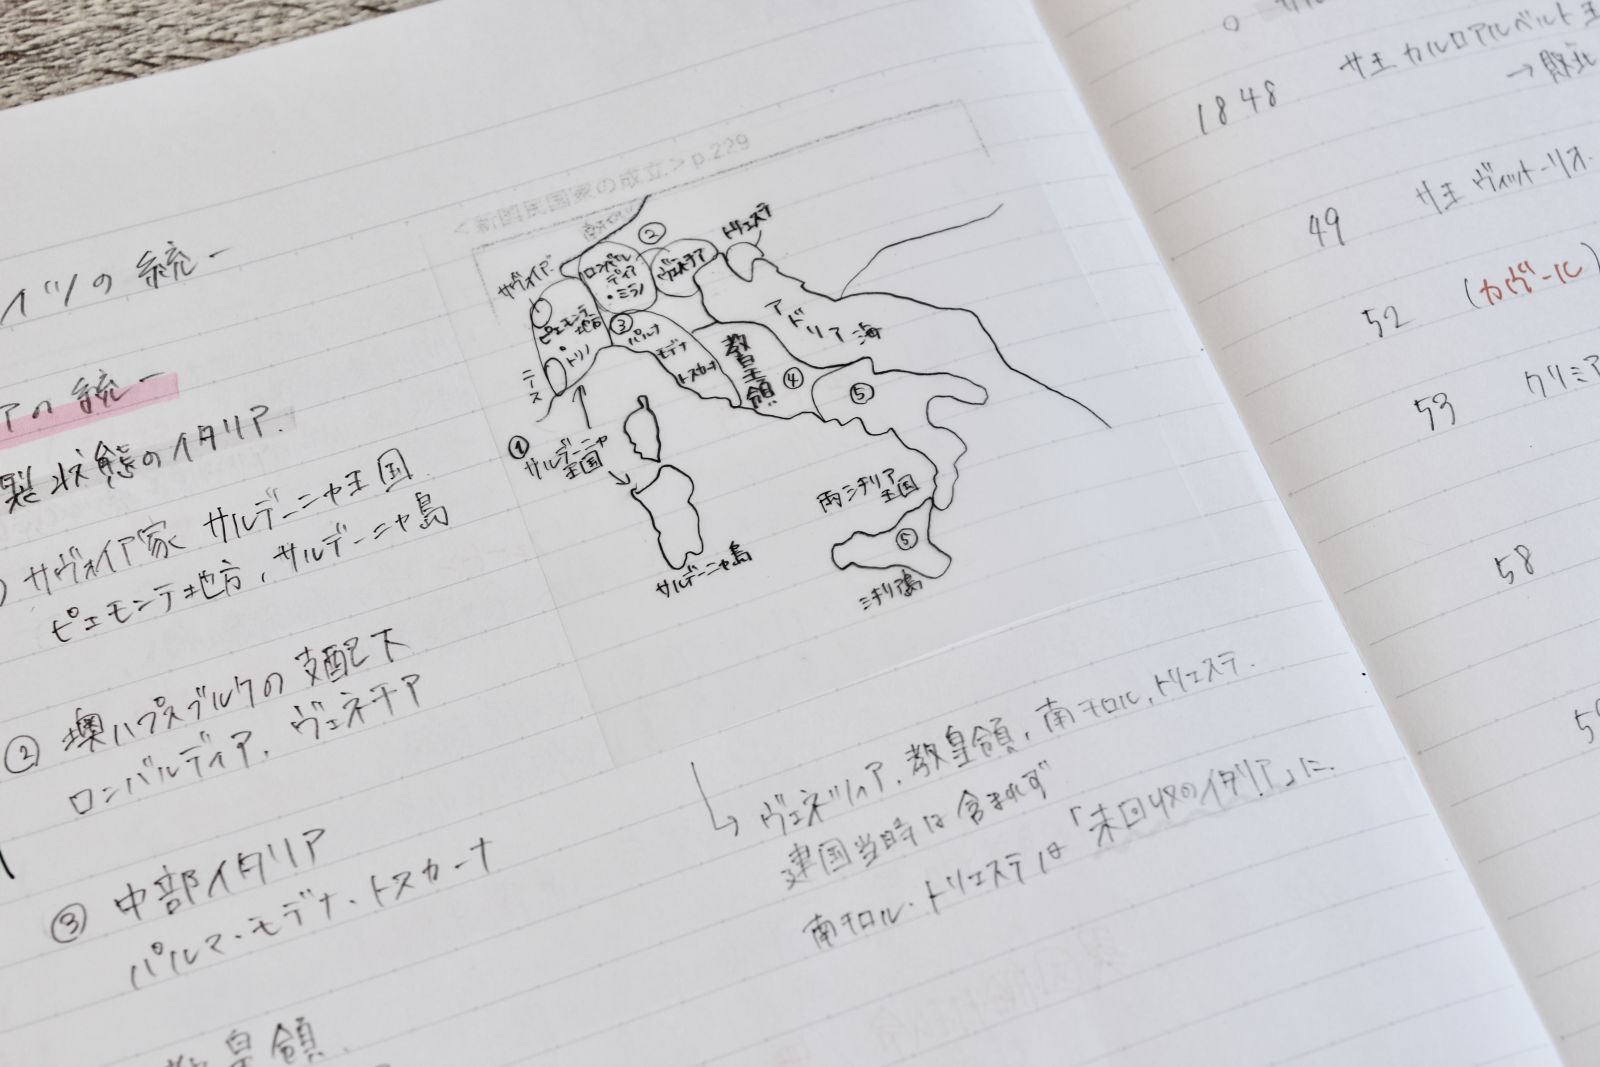 イツの統一
アの統一
裂状態のイタリア.
サヴォイア家 サルデーニャ王国
ピエモンテ地方, サルデーニャ島
② 墺ハプスブルクの支配下
ロンバルディア, ヴェネチア
③ 中部イタリア
パルマ・モデナ・トスカーナ
教皇領
p.229
②
トリエステ
サヴォイア
ロンバルディア
・ミラノ
ヴェネチア
ピエモンテ地方
・トリノ
ニース
③
パルマ
モデナ
トスカーナ
教皇領
④
アドリア海
⑤
①
サルデーニャ王国
サルデーニャ島
両シチリア王国
⑤
シチリア島
↳ ヴェネツィア, 教皇領, 南チロル, トリエステ.
建国当時は含まれず
南チロル・トリエステは「未回収のイタリア」に.
1848 サ王 カルロアルベルト王
→敗北
49 サ王 ヴィットーリオ
52 (カヴール)
53 クリミア
58